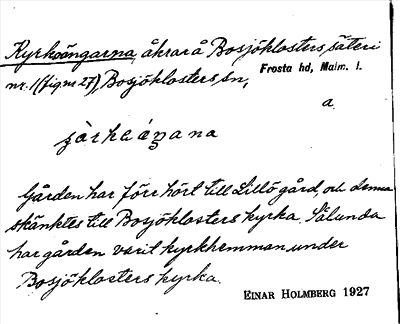 Kyrkoängarna, åkrar å Bosjöklosters säteri
nr. 1 (fig nr 27), Bosjöklosters sn,
Frosta hd, Malm. l.
a.
Gården har förr hört till Lillö gård, och denna
skänktes till Bosjöklosters kyrka. Sålunda
har gården varit kyrkhemman under
Bosjöklosters kyrka.
EINAR HOLMBERG 1927